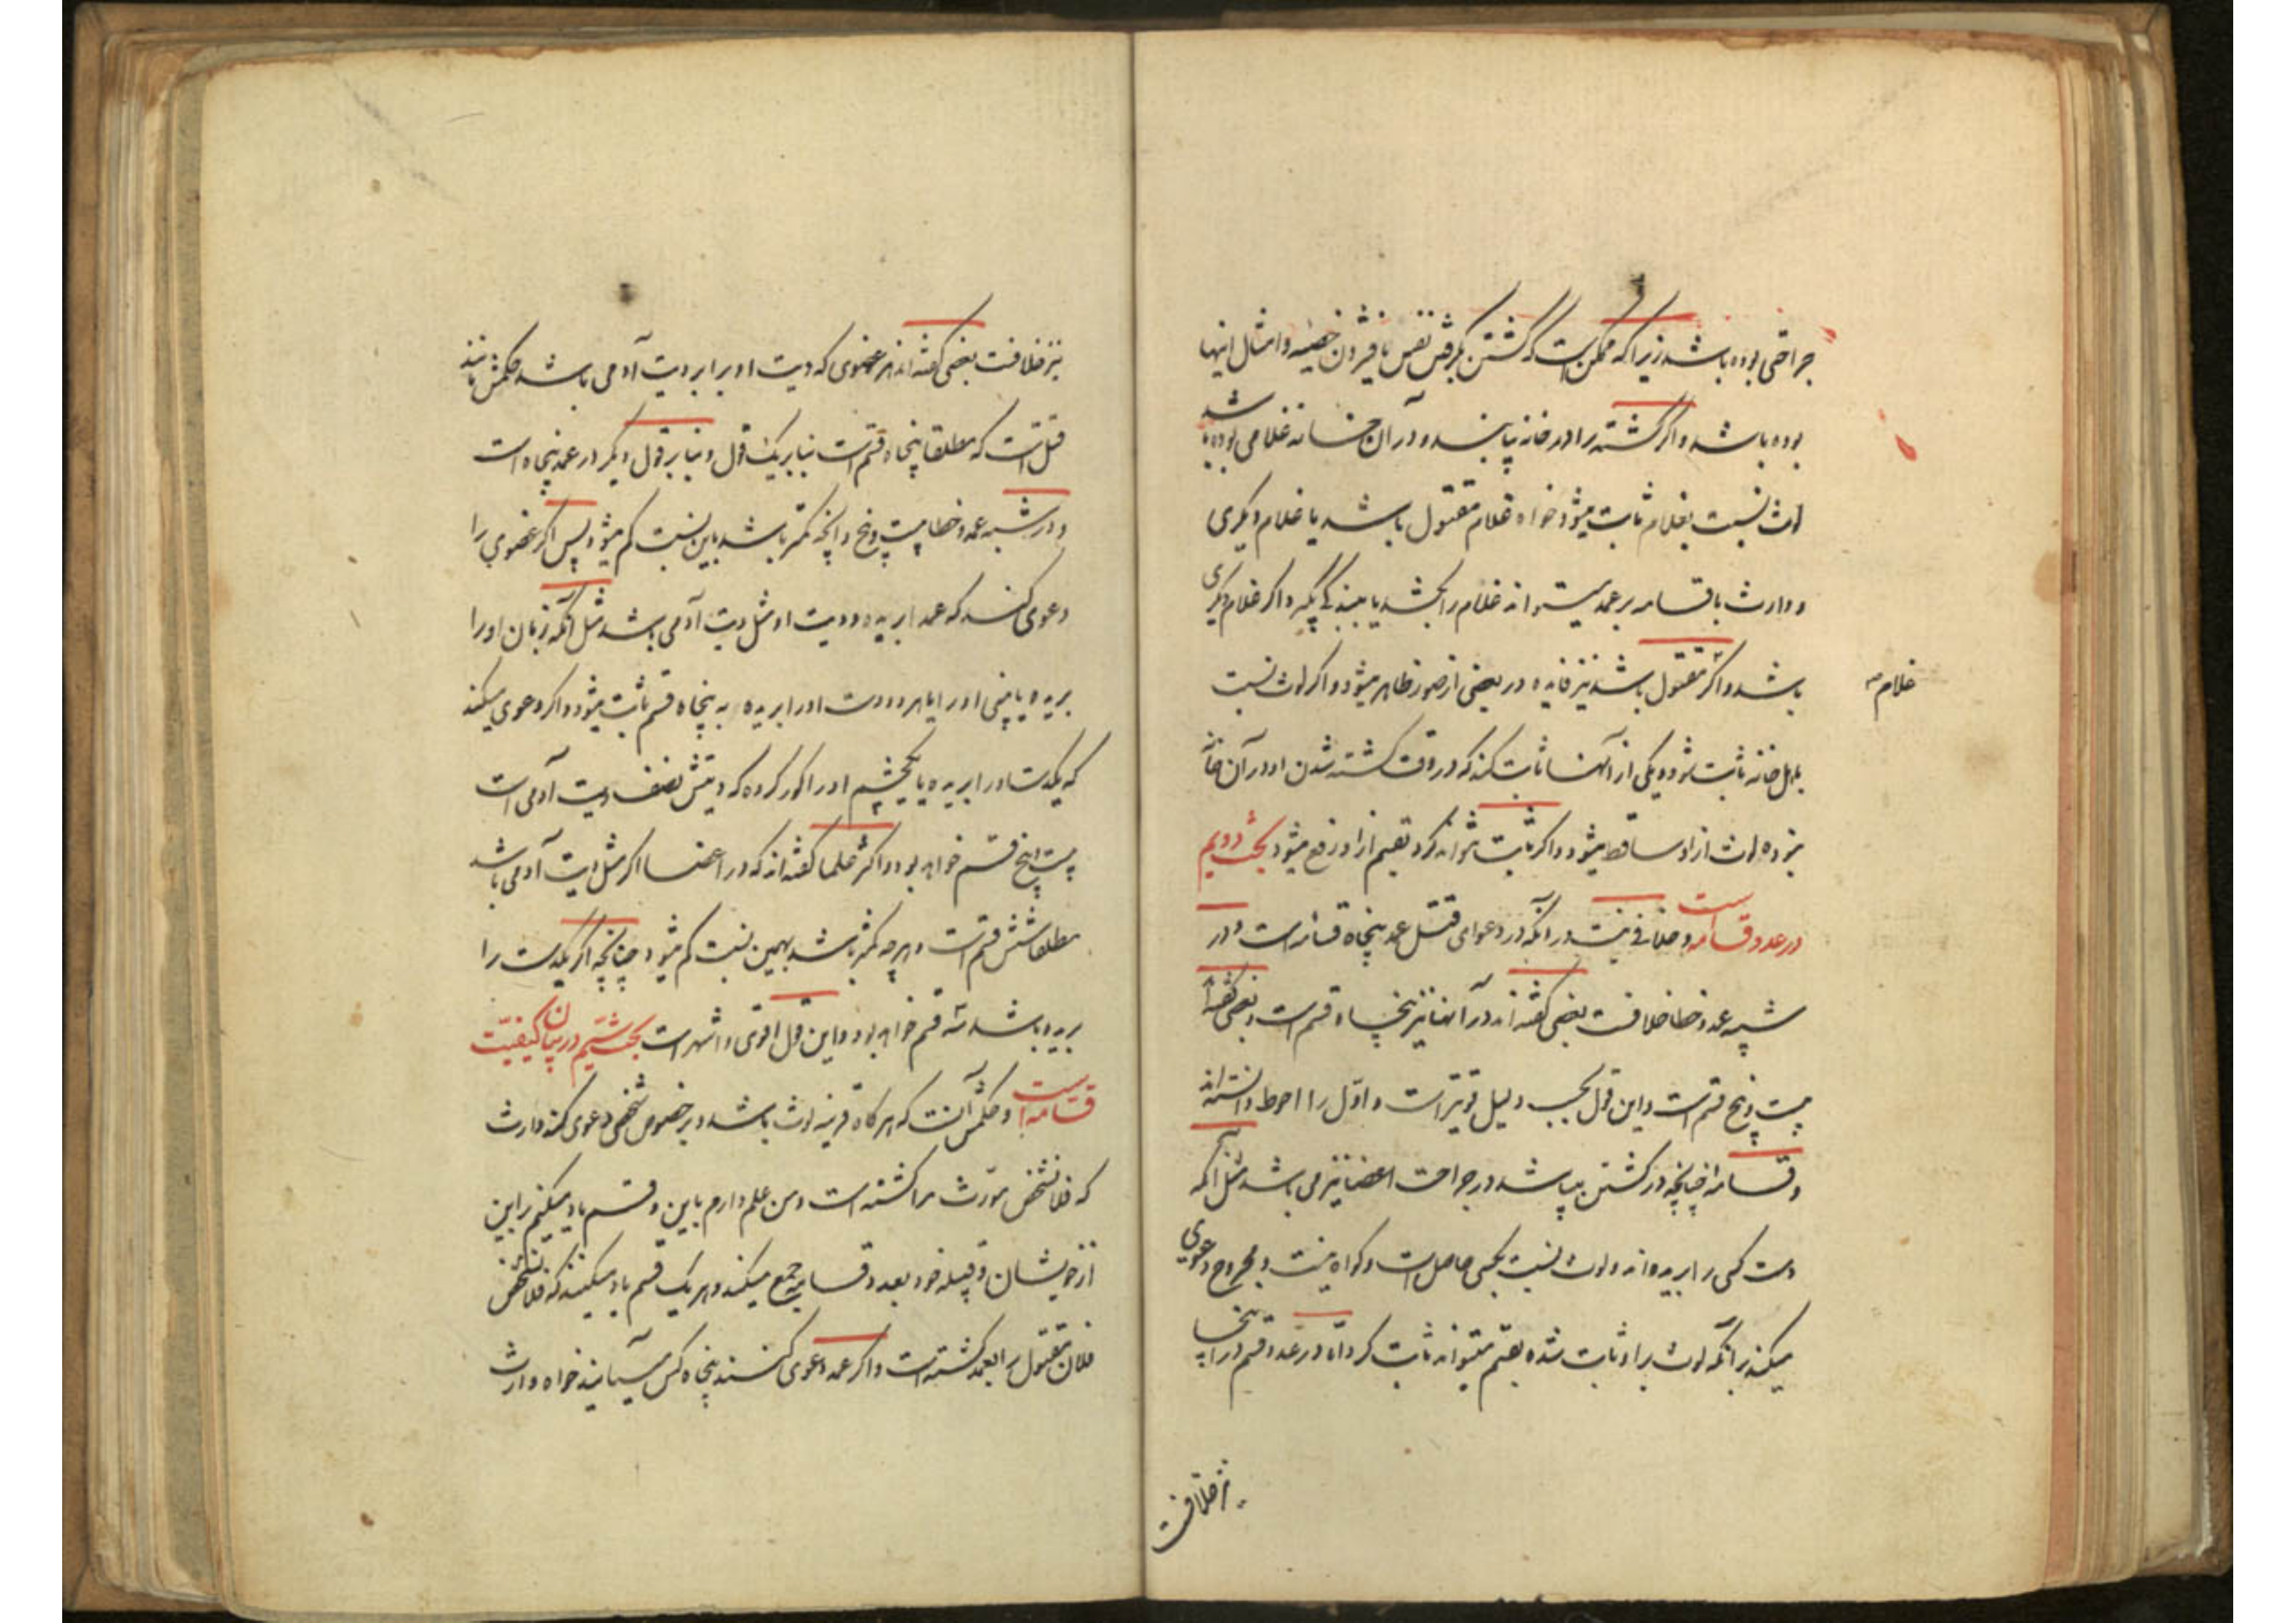 جراحتی بوده باشد زیرا که ممکن است که کشتن بگرفتن نفس یا فشردن خصیه و امثال اینها
بوده باشد و اگر کشته را در خانه بیابند و در آن خانه غلامی بوده باشد
لوث نسبت بغلام ثابت میشود خواه غلام مقتول باشد یا غلام دیگری
و وارث با قسامه بر عمد میتواند غلام را بکشد یا ببندگی بگیرد اگر غلام دیگری
باشد و اگر مقتول باشد نیز فایده در بعضی از صور ظاهر میشود و اگر لوث نسبت
غلام
باهل خانه ثابت شود و یکی از آنها ثابت کند که در وقت کشته شدن او در آن خانه
نبوده لوث از او ساقط میشود و اگر ثابت نتواند کرد بقسم از او رفع میشود بحث دویم
در عدد قسامه است و خلافی نیست در آنکه در دعوای قتل عمد پنجاه قسامه است و در
شبیه عمد و خطا خلافست بعضی گفته اند در آنها نیز پنجاه قسم است و بعضی گفته اند
بیست و پنج قسم است و این قول بحسب دلیل قویتر است و اول را احوط دانسته اند
و قسامه چنانچه در کشتن میباشد در جراحت اعضا نیز می باشد مثل آنکه
دست کسی را بریده اند و لوث نسبت بکسی حاصل است و گواه نیست و مجروح دعوی
میکند بر آنکه لوث بر او ثابت شده بقسم میتواند ثابت کرد و اما در عدد قسم در اینجا
نیز خلافست
نیز خلافست بعضی گفته اند هر عضوی که دیت او برابر دیت آدمی باشد حکمش مانند
قتل است که مطلقا پنجاه قسم است بنا بر یک قول و بنا بر قول دیگر در عمد پنجاه است
و در شبیه عمد و خطا بیست و پنج و آنچه کمتر باشد باین نسبت کم میشود پس اگر عضوی را
دعوی کند که عمدا بریده و دیت او مثل دیت آدمی باشد مثل آنکه زبان او را
بریده یا بینی او را یا هر دو دست او را بریده به پنجاه قسم ثابت میشود و اگر دعوی میکند
که یکدست او را بریده یا یکچشم او را کور کرده که دیتش نصف دیت آدمی است
بیست و پنج قسم خواهد بود و اکثر علما گفته اند که در اعضا اگر مثل دیت آدمی باشد
مطلقا شش قسم است و هر چه کمتر باشد بهمین نسبت کم میشود چنانچه اگر یکدست را
بریده باشد سه قسم خواهد بود و این قول اقوی و اشهر است بحث سیم در بیان کیفیت
قسامه است و حکمش آنست که هر گاه قرینه لوث باشد و بر خصوص شخصی دعوی کند وارث
که فلانشخص مورث مرا کشته است و من علم دارم باین و قسم یاد میکنم بر این
از خویشان و قبیله خود بعدد قسامه جمع میکند و هر یک قسم یاد میکنند که فلانشخص
فلان مقتول را بعمد کشته است و اگر عمد دعوی کنند پنجاه کس میآیند خواه وارث